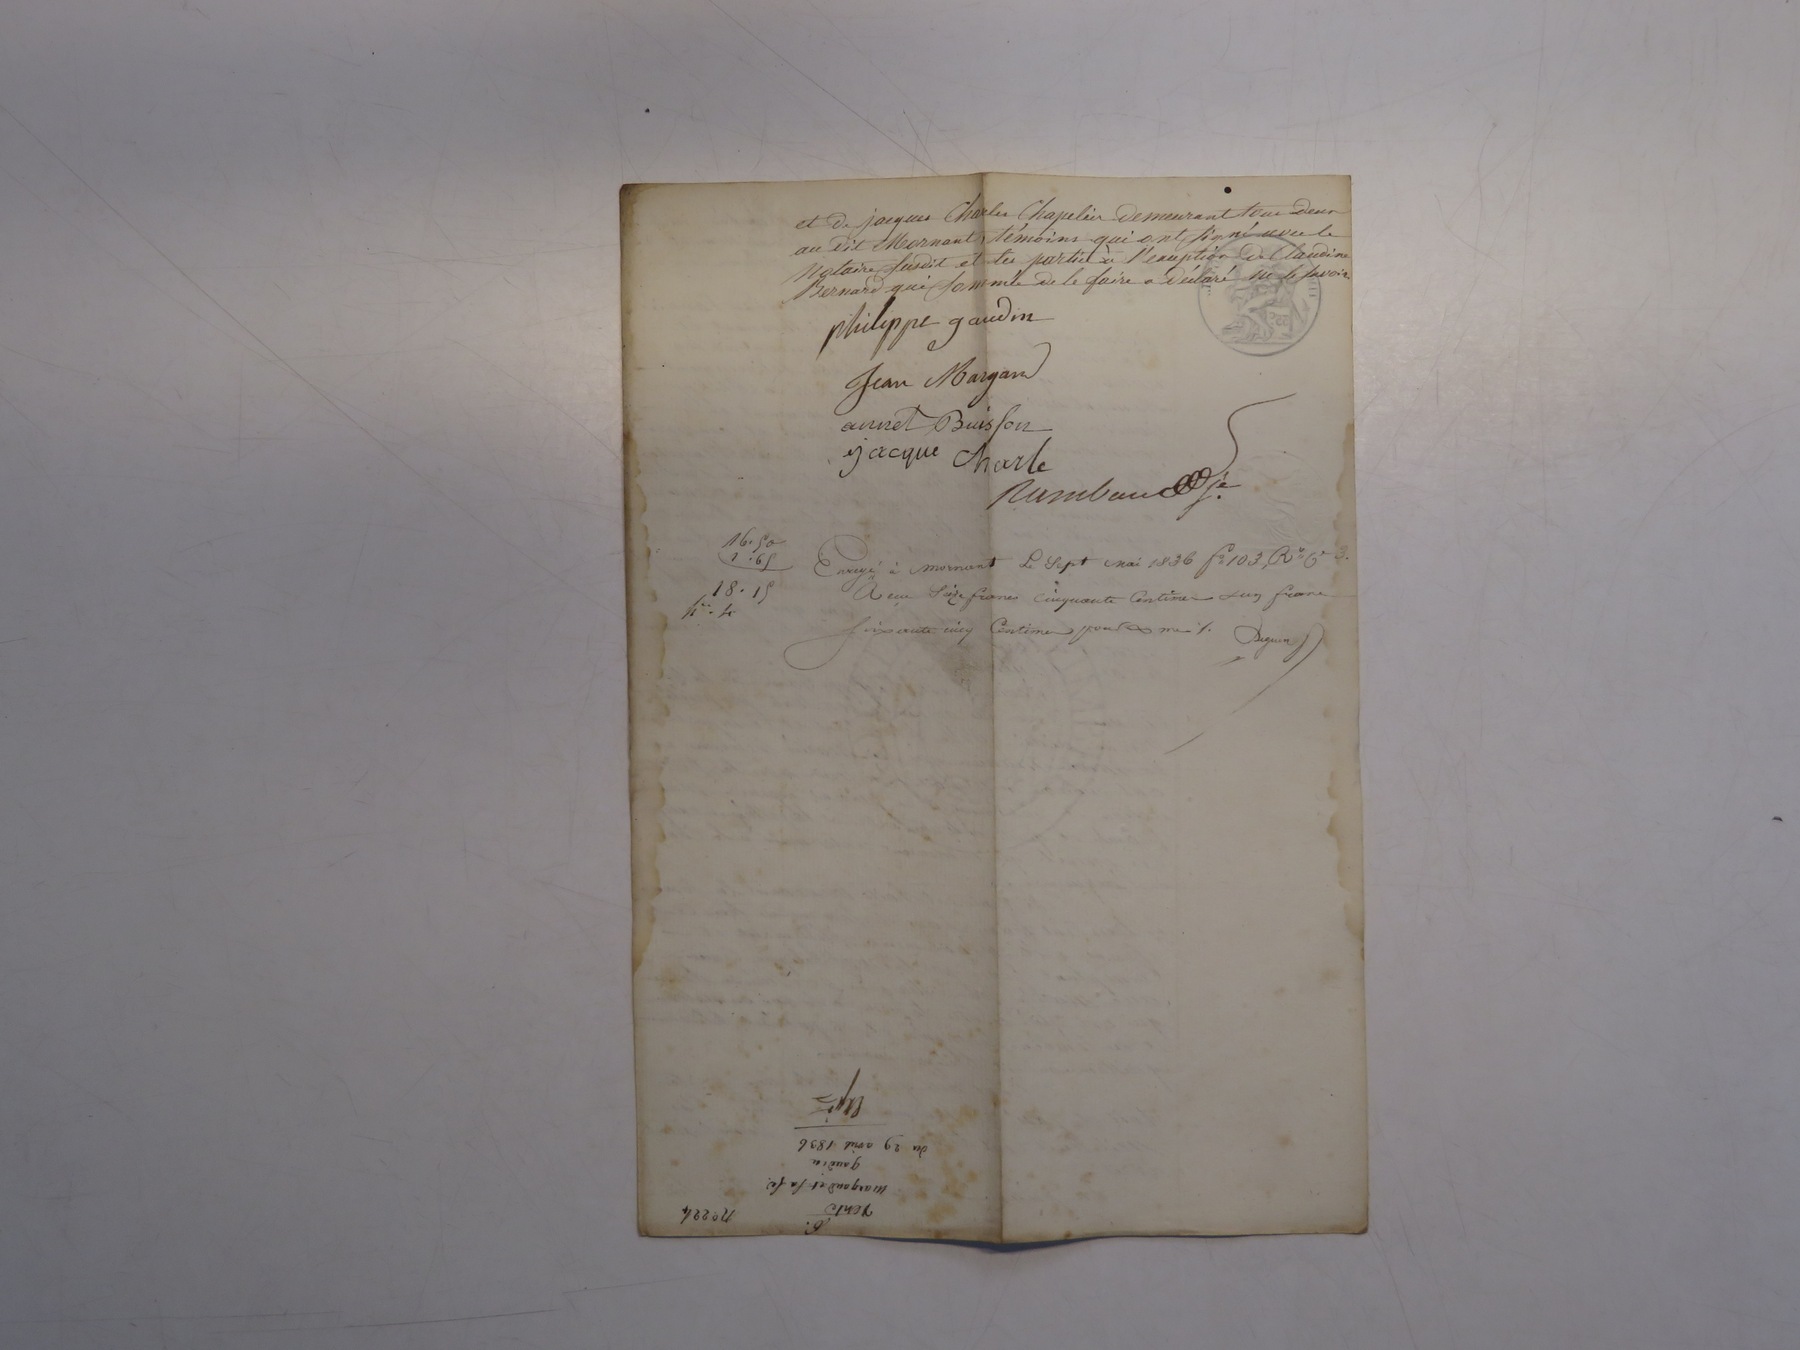 et de jacques Charles Chapelier demeurant tous deux
au dit Mornant, témoins qui ont signé avec le
Notaire susdit et les parties à l'exception de Claudine
Bernard qui sommée de le faire a déclaré ne le savoir
philippe gaudin
Jean Margand
annet Buisson
jacque charle
Rambaud
16.50
1.65
18.15
Enregé à mornant Le Sept mai 1836 fo 103, Ro Ce 3.
Reçu Seize francs cinquante Centimes & un franc
soixante cinq Centimes pour
No 224
Vente
margand et sa fe.
gaudin
du 29 avril 1836